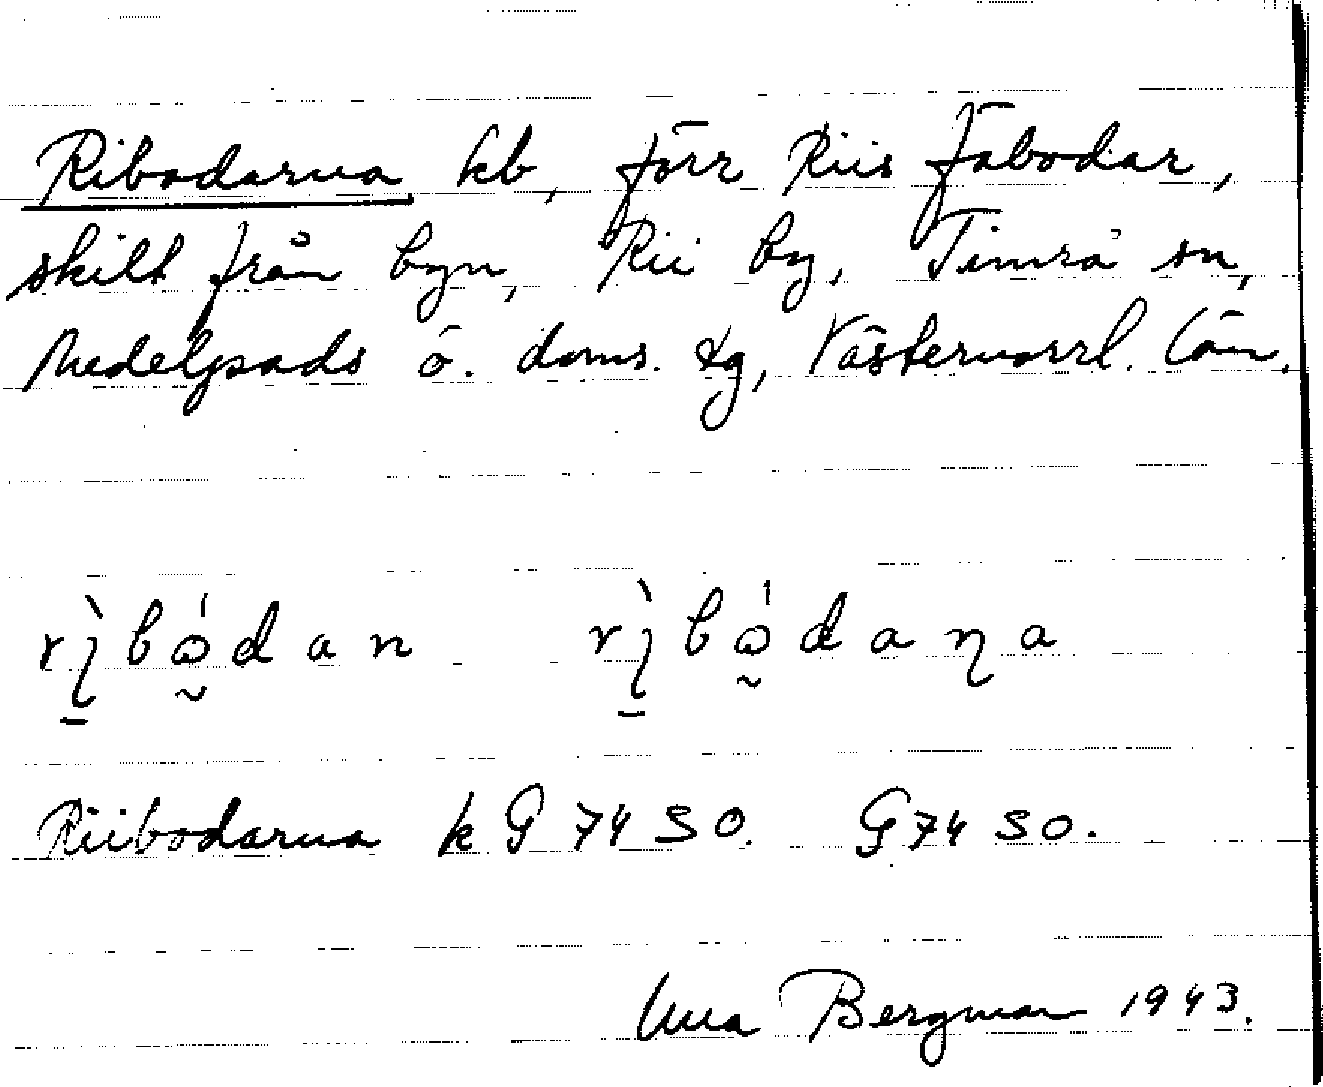 Ribodarna kb, förr Riis fäbodar,
skilt från byn, Rii by, Timrå sn,
Medelpads ö. doms. tg, Västernorrl. län.
rìbǫ́dan rìbǫ́daṇa
Riibodarna k G 74 SO. G 74 SO.
Una Bergman 1943.